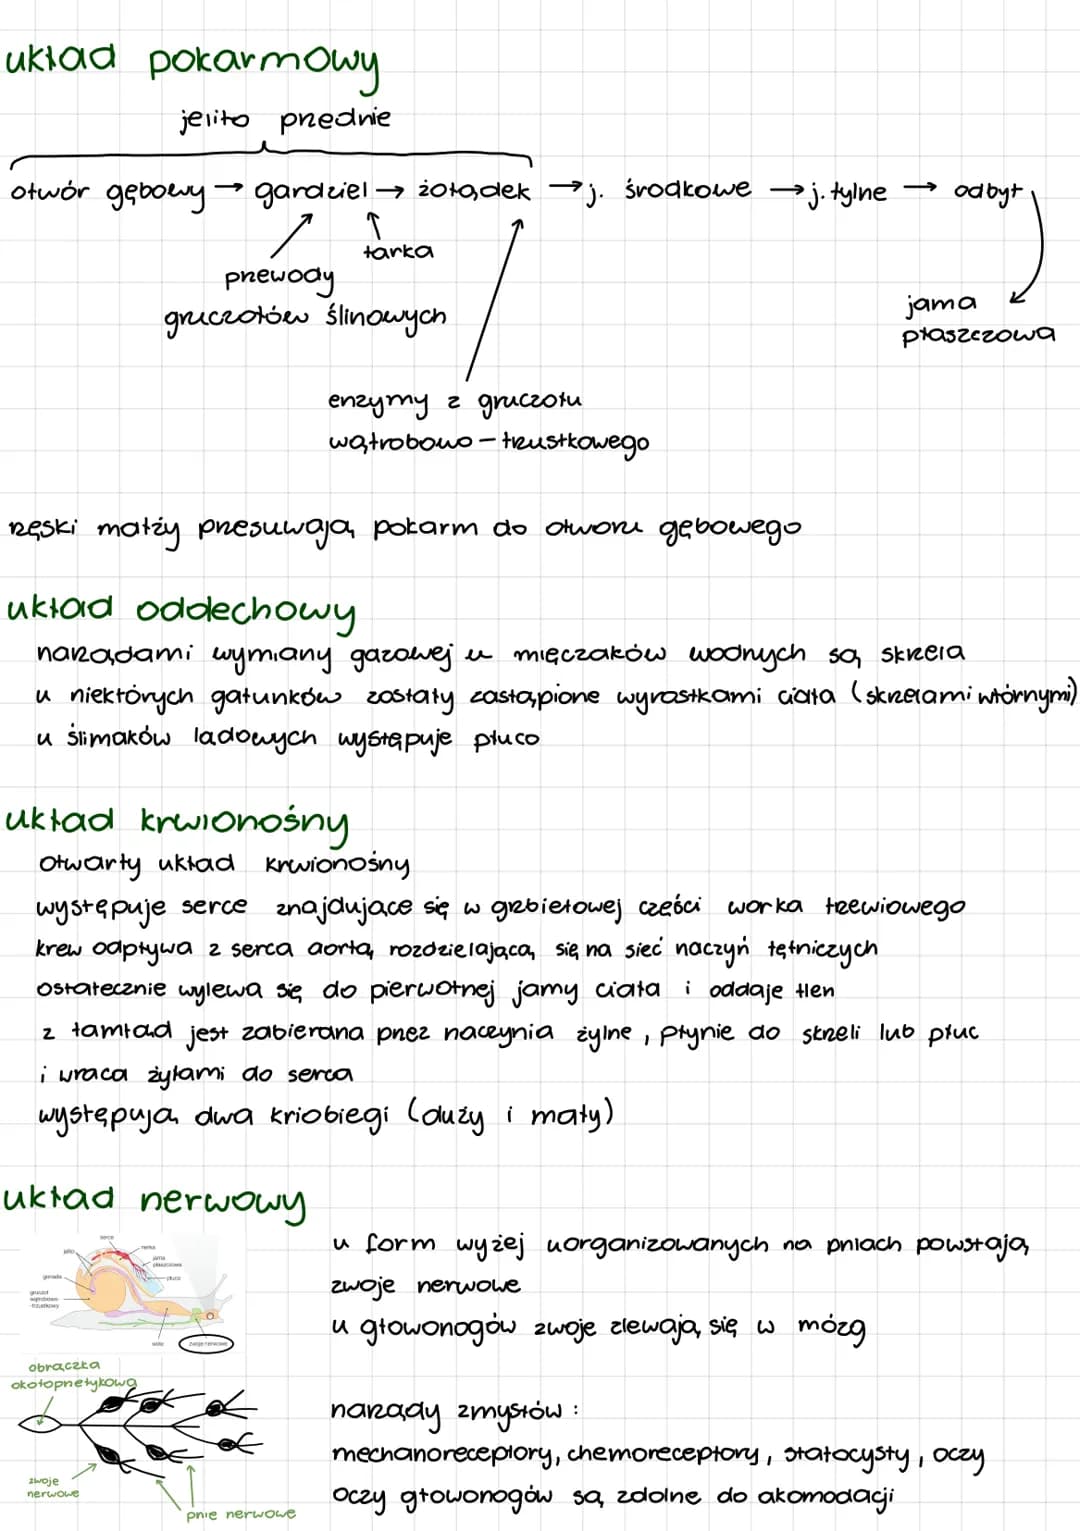 układ pokarmowy
jelito przednie
otwór gębowy → gardziel → żołądek → j. środkowe → j. tylne → odbyt
tarka
przewody
gruczołów ślinowych
jama
płaszczowa
enzymy z gruczołu
wątrobowo - trzustkowego
rzęski małży przesuwają pokarm do otworu gębowego
układ oddechowy
narządami wymiany gazowej u mięczaków wodnych są skrzela
u niektórych gatunków zostały zastąpione wyrostkami ciała (skrzelami wtórnymi)
u ślimaków lądowych występuje płuco
układ krwionośny
otwarty układ krwionośny
występuje serce znajdujące się w grzbietowej części worka trzewiowego
krew odpływa z serca aortą rozdzielającą się na sieć naczyń tętniczych
ostatecznie wylewa się do pierwotnej jamy ciała i oddaje tlen
z tamtąd jest zabierana przez naczynia żylne, płynie do skrzeli lub płuc
i wraca żyłami do serca
występują dwa kriobiegi (duży i mały)
układ nerwowy
serce
jelito
nerka
jama
płaszczowa
płuco
gonada
gruczoł
wątrobowo
-trzustkowy
wole
zwoje nerwowe
u form wyżej uorganizowanych na pniach powstają
zwoje nerwowe
u głowonogów zwoje zlewają się w mózg
obrączka
okołoprzełykowa
zwoje
nerwowe
pnie nerwowe
narządy zmysłów :
mechanoreceptory, chemoreceptory, statocysty, oczy
oczy głowonogów są zdolne do akomodacji